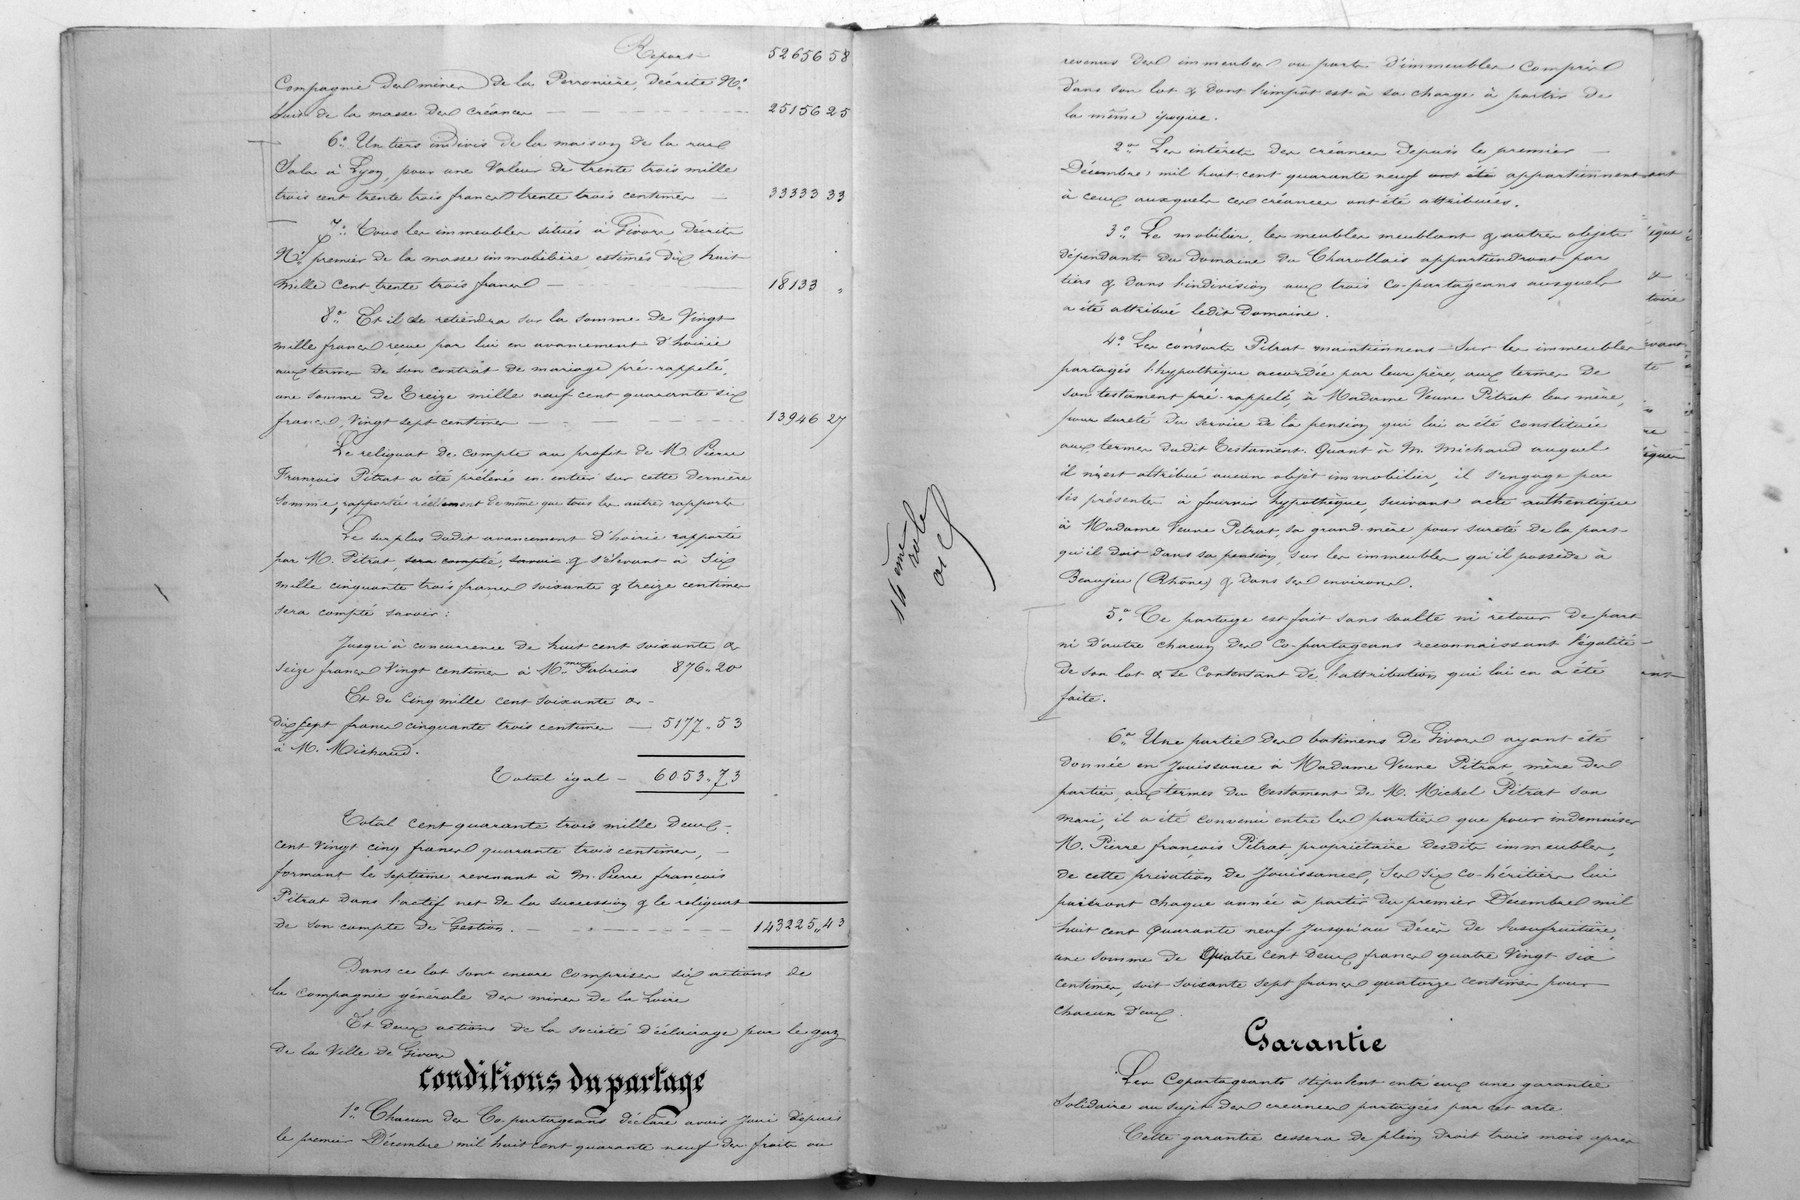 Report 52656 58
Compagnie des mines de la Perronière, décrite N.º
huit de la masse des créances 25156 25
6.º Un tiers indivis de la maison de la rue
Sala à Lyon, pour une Valeur de trente trois mille
trois cent trente trois francs trente trois centimes 33333 33
7.º Tous les immeubles situés à Givors, décrits
N.º premier de la masse immobilière, estimés dix huit
mille cent trente trois francs 18133 "
8.º Et il se retiendra sur la somme de Vingt
mille francs reçue par lui en avancement d'hoirie
aux termes de son contrat de mariage pré-rappelé,
une somme de Treize mille neuf cent quarante six
francs, Vingt sept centimes 13946 27
Le reliquat de compte au profit de M. Pierre
François Pitrat a été prélevés en entier sur cette dernière
somme, rapportée réellement de même que tous les autres rapports
Le surplus dudit avancement d'hoirie rapporté
par M. Pitrat, sera compté, savoir & s'élevant à Six
mille cinquante trois francs soixante & treize centimes
sera compté savoir:
Jusqu'à concurrence de huit cent soixante &
seize francs Vingt centimes à M.me Fabrius 876.20
Et de Cinq mille cent soixante &
dix sept francs cinquante trois centimes 5177.53
à M. Michaud.
Total égal 6053.73
Total cent quarante trois mille Deux
cent Vingt cinq francs quarante trois centimes,
formant le septième revenant à M. Pierre françois
Pitrat dans l'actif net de la succession & le reliquat
de son compte de Gestion. 143225.43
Dans ce lot sont encore comprises six actions de
la Compagnie générale des mines de la Loire
Et deux actions de la société d'éclairage par le gaz
de la Ville de Givors
Conditions du partage
1.º Chacun des Co-partageans déclare avoir joui depuis
le premier Décembre mil huit cent quarante neuf des fruits ou
14ème role
revenus des immeubles ou parts d'immeubles compris
dans son lot & dont l'impôt est à sa charge à partir de
la même époque.
2.º Les intérêts des créances depuis le premier
Décembre mil huit cent quarante neuf ont été appartiennent
à ceux auxquels ces créances ont été attribuées.
3.º Le mobilier, les meubles meublant & autres objets
dépendants du domaine du Charollais appartiendront par
tiers & dans l'indivision aux trois Co-partageans auxquels
a été attribué ledit Domaine.
4.º Les consorts Pitrat maintiennent sur les immeubles
partagés l'hypothèque accordée par leur père, aux termes de
son testament pré-rappelé, à Madame Veuve Pitrat leur mère,
pour sureté du service de la pension qui lui a été constituée
aux termes dudit Testament. Quant à M. Michaud auquel
il n'est attribué aucun objet immobilier, il s'engage par
ses présentes à fournir hypothèque, suivant acte authentique
à Madame Veuve Pitrat, sa grand-mère, pour sureté de la part
qu'il doit dans sa pension, sur les immeubles qu'il possède à
Beaujeu (Rhône) & dans ses environs.
5.º Ce partage est fait sans soulte ni retour de part
ni d'autre chacun des Co-partageans reconnaissant l'égalité
de son lot & se contentant de l'attribution qui lui en a été
faite.
6.º Une partie des batimens de Givors ayant été
donnée en jouissance à Madame Veuve Pitrat, mère des
parties, aux termes du testament de M. Michel Pitrat son
mari, il a été convenu entre les parties que pour indemniser
M. Pierre françois Pitrat, propriétaire desdits immeubles,
de cette privation de Jouissance, ses six co-héritiers lui
paieront chaque année à partir du premier Décembre mil
huit cent Quarante neuf jusqu'au Décès de l'usufruitière,
une somme de Quatre cent Deux francs quatre Vingt six
centimes, soit soixante sept francs quatorze centimes pour
chacun d'eux.
Garantie
Les Copartageants stipulent entr'eux une garantie
solidaire au sujet des créances partagées par cet acte
Cette garantie cessera de plein droit trois mois après